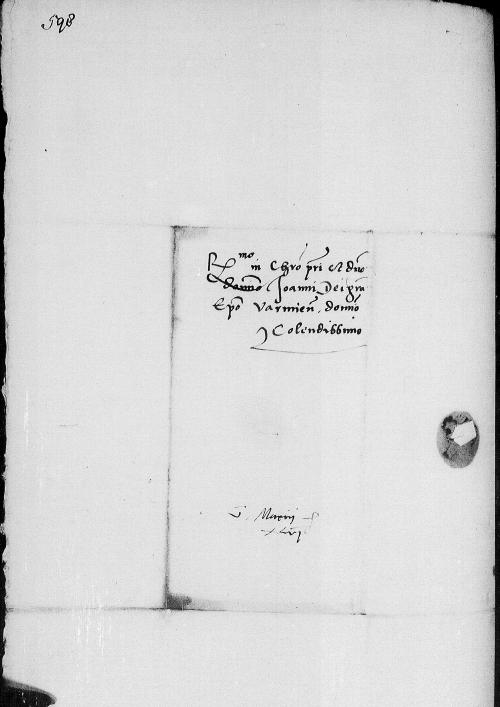 598
R mo in Chro pri et dno
domno Joanni Dei gra
Epo Varmien. domo
Colendissimo
Marij